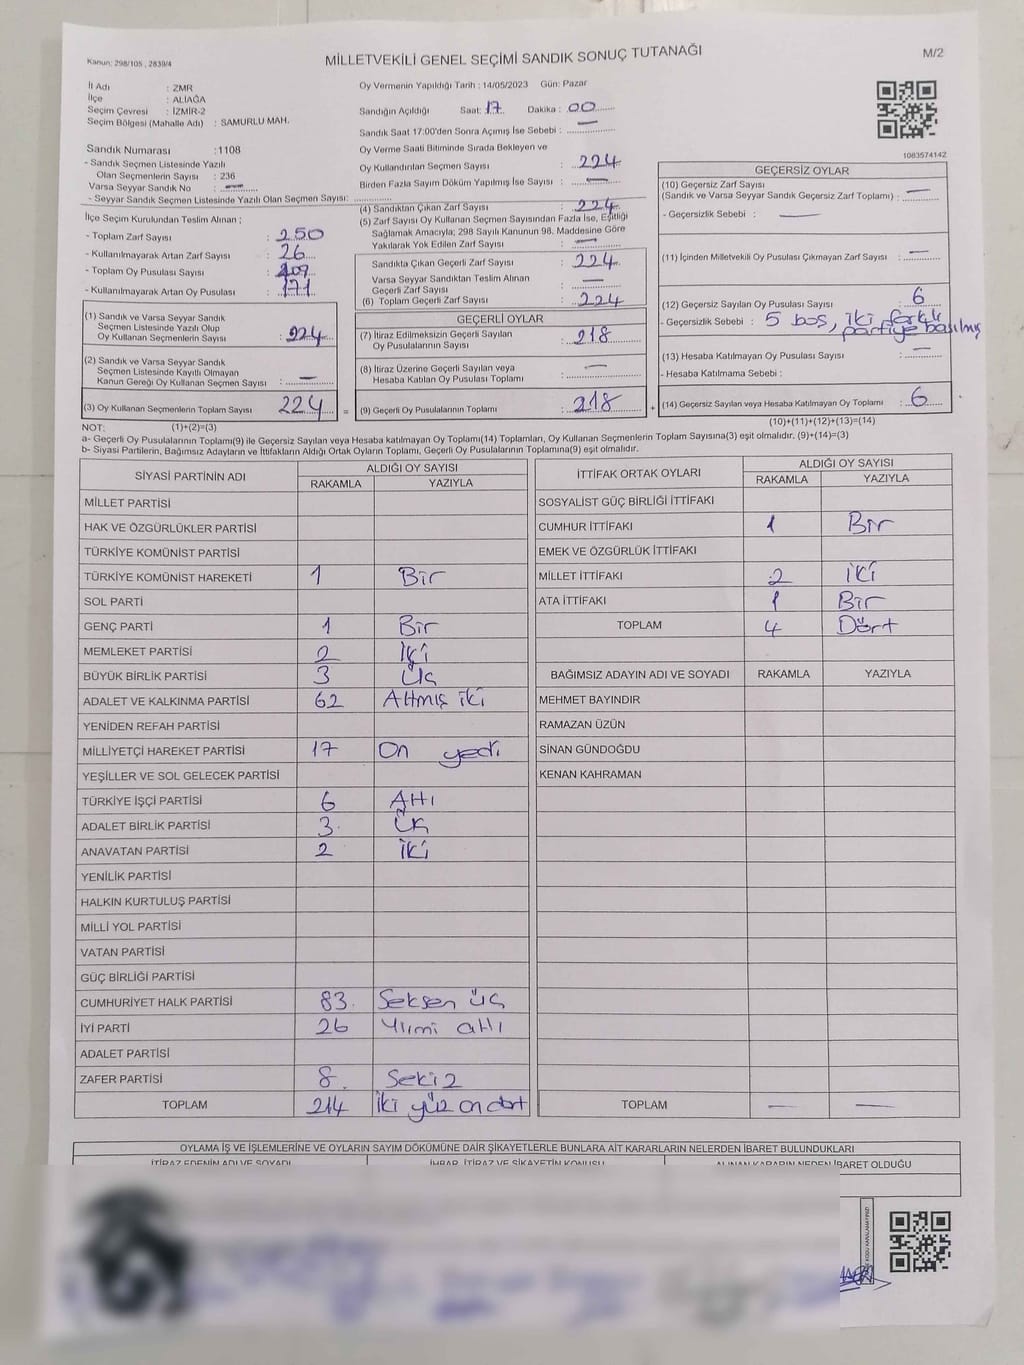 MİLLETVEKİLİ GENEL SEÇİMİ SANDIK SONUÇ TUTANAĞI
M/2
Kanun: 298/105 , 2839/4
İl Adı : İZMİR
İlçe : ALİAĞA
Seçim Çevresi : İZMİR-2
Seçim Bölgesi (Mahalle Adı) : SAMURLU MAH.
Sandık Numarası :1108
- Sandık Seçmen Listesinde Yazılı
Olan Seçmenlerin Sayısı : 236
Varsa Seyyar Sandık No : —
- Seyyar Sandık Seçmen Listesinde Yazılı Olan Seçmen Sayısı:
Oy Vermenin Yapıldığı Tarih : 14/05/2023 Gün: Pazar
Sandığın Açıldığı Saat: 17 Dakika : 00
Sandık Saat 17:00'den Sonra Açılmış İse Sebebi : —
Oy Verme Saati Bitiminde Sırada Bekleyen ve
Oy Kullandırılan Seçmen Sayısı : 224
Birden Fazla Sayım Döküm Yapılmış İse Sayısı : —
1083574142
İlçe Seçim Kurulundan Teslim Alınan ;
- Toplam Zarf Sayısı : 250
- Kullanılmayarak Artan Zarf Sayısı : 26
- Toplam Oy Pusulası Sayısı :
- Kullanılmayarak Artan Oy Pusulası : 171
(1) Sandık ve Varsa Seyyar Sandık
Seçmen Listesinde Yazılı Olup
Oy Kullanan Seçmenlerin Sayısı : 224
(2) Sandık ve Varsa Seyyar Sandık
Seçmen Listesinde Kayıtlı Olmayan
Kanun Gereği Oy Kullanan Seçmen Sayısı : —
(3) Oy Kullanan Seçmenlerin Toplam Sayısı 224 =
(4) Sandıktan Çıkan Zarf Sayısı : 224
(5) Zarf Sayısı Oy Kullanan Seçmen Sayısından Fazla İse, Eşitliği
Sağlamak Amacıyla; 298 Sayılı Kanunun 98. Maddesine Göre
Yakılarak Yok Edilen Zarf Sayısı : —
Sandıkta Çıkan Geçerli Zarf Sayısı : 224
Varsa Seyyar Sandıktan Teslim Alınan
Geçerli Zarf Sayısı : —
(6) Toplam Geçerli Zarf Sayısı : 224
GEÇERLİ OYLAR
(7) İtiraz Edilmeksizin Geçerli Sayılan
Oy Pusulalarının Sayısı : 218
(8) İtiraz Üzerine Geçerli Sayılan veya
Hesaba Katılan Oy Pusulası Toplamı : —
(9) Geçerli Oy Pusulalarının Toplamı : 218 +
GEÇERSİZ OYLAR
(10) Geçersiz Zarf Sayısı
(Sandık ve Varsa Seyyar Sandık Geçersiz Zarf Toplamı) : —
- Geçersizlik Sebebi : —
(11) İçinden Milletvekili Oy Pusulası Çıkmayan Zarf Sayısı : —
(12) Geçersiz Sayılan Oy Pusulası Sayısı : 6
- Geçersizlik Sebebi : 5 boş, iki farklı
partiye basılmış
(13) Hesaba Katılmayan Oy Pusulası Sayısı : —
- Hesaba Katılmama Sebebi :
(14) Geçersiz Sayılan veya Hesaba Katılmayan Oy Toplamı : 6
NOT: (1)+(2)=(3) (10)+(11)+(12)+(13)=(14)
a- Geçerli Oy Pusulalarının Toplamı(9) ile Geçersiz Sayılan veya Hesaba katılmayan Oy Toplamı(14) Toplamları, Oy Kullanan Seçmenlerin Toplam Sayısına(3) eşit olmalıdır. (9)+(14)=(3)
b- Siyasi Partilerin, Bağımsız Adayların ve İttifakların Aldığı Ortak Oyların Toplamı, Geçerli Oy Pusulalarının Toplamına(9) eşit olmalıdır.
SİYASİ PARTİNİN ADI ALDIĞI OY SAYISI
RAKAMLA YAZIYLA
MİLLET PARTİSİ
HAK VE ÖZGÜRLÜKLER PARTİSİ
TÜRKİYE KOMÜNİST PARTİSİ
TÜRKİYE KOMÜNİST HAREKETİ 1 Bir
SOL PARTİ
GENÇ PARTİ 1 Bir
MEMLEKET PARTİSİ 2 İki
BÜYÜK BİRLİK PARTİSİ 3 Üç
ADALET VE KALKINMA PARTİSİ 62 Altmış iki
YENİDEN REFAH PARTİSİ
MİLLİYETÇİ HAREKET PARTİSİ 17 On yedi
YEŞİLLER VE SOL GELECEK PARTİSİ
TÜRKİYE İŞÇİ PARTİSİ 6 Altı
ADALET BİRLİK PARTİSİ 3 Üç
ANAVATAN PARTİSİ 2 İki
YENİLİK PARTİSİ
HALKIN KURTULUŞ PARTİSİ
MİLLİ YOL PARTİSİ
VATAN PARTİSİ
GÜÇ BİRLİĞİ PARTİSİ
CUMHURİYET HALK PARTİSİ 83 Seksen üç
İYİ PARTİ 26 Yirmi altı
ADALET PARTİSİ
ZAFER PARTİSİ 8 Sekiz
TOPLAM 214 İki yüz on dört
İTTİFAK ORTAK OYLARI ALDIĞI OY SAYISI
RAKAMLA YAZIYLA
SOSYALİST GÜÇ BİRLİĞİ İTTİFAKI
CUMHUR İTTİFAKI 1 Bir
EMEK VE ÖZGÜRLÜK İTTİFAKI
MİLLET İTTİFAKI 2 İki
ATA İTTİFAKI 1 Bir
TOPLAM 4 Dört
BAĞIMSIZ ADAYIN ADI VE SOYADI RAKAMLA YAZIYLA
MEHMET BAYINDIR
RAMAZAN ÜZÜN
SİNAN GÜNDOĞDU
KENAN KAHRAMAN
TOPLAM — —
OYLAMA İŞ VE İŞLEMLERİNE VE OYLARIN SAYIM DÖKÜMÜNE DAİR ŞİKAYETLERLE BUNLARA AİT KARARLARIN NELERDEN İBARET BULUNDUKLARI
İTİRAZ EDENİN ADI VE SOYADI İHBAR, İTİRAZ VE ŞİKAYETİN KONUSU ALINAN KARARIN NEDEN İBARET OLDUĞU